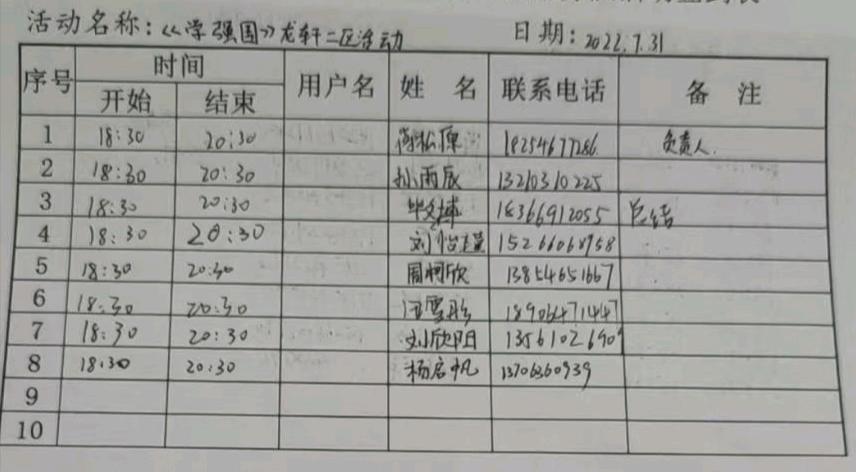 活动名称：《学强国》龙轩二区活动 日期：2022.7.31
序号 时间 用户名 姓名 联系电话 备注
开始 结束
1 18:30 20:30 松原 18254677286 负责人.
2 18:30 20:30 孙雨辰 13210310225
3 18:30 20:30 毕文婷 18366912055 总结
4 18:30 20:30 刘怡 15266068958
5 18:30 20:30 周柯欣 13854651667
6 18:30 20:30 汪雪彤 18906471447
7 18:30 20:30 刘欣阳 13561026909
8 18:30 20:30 杨启帆 13706360939
9
10